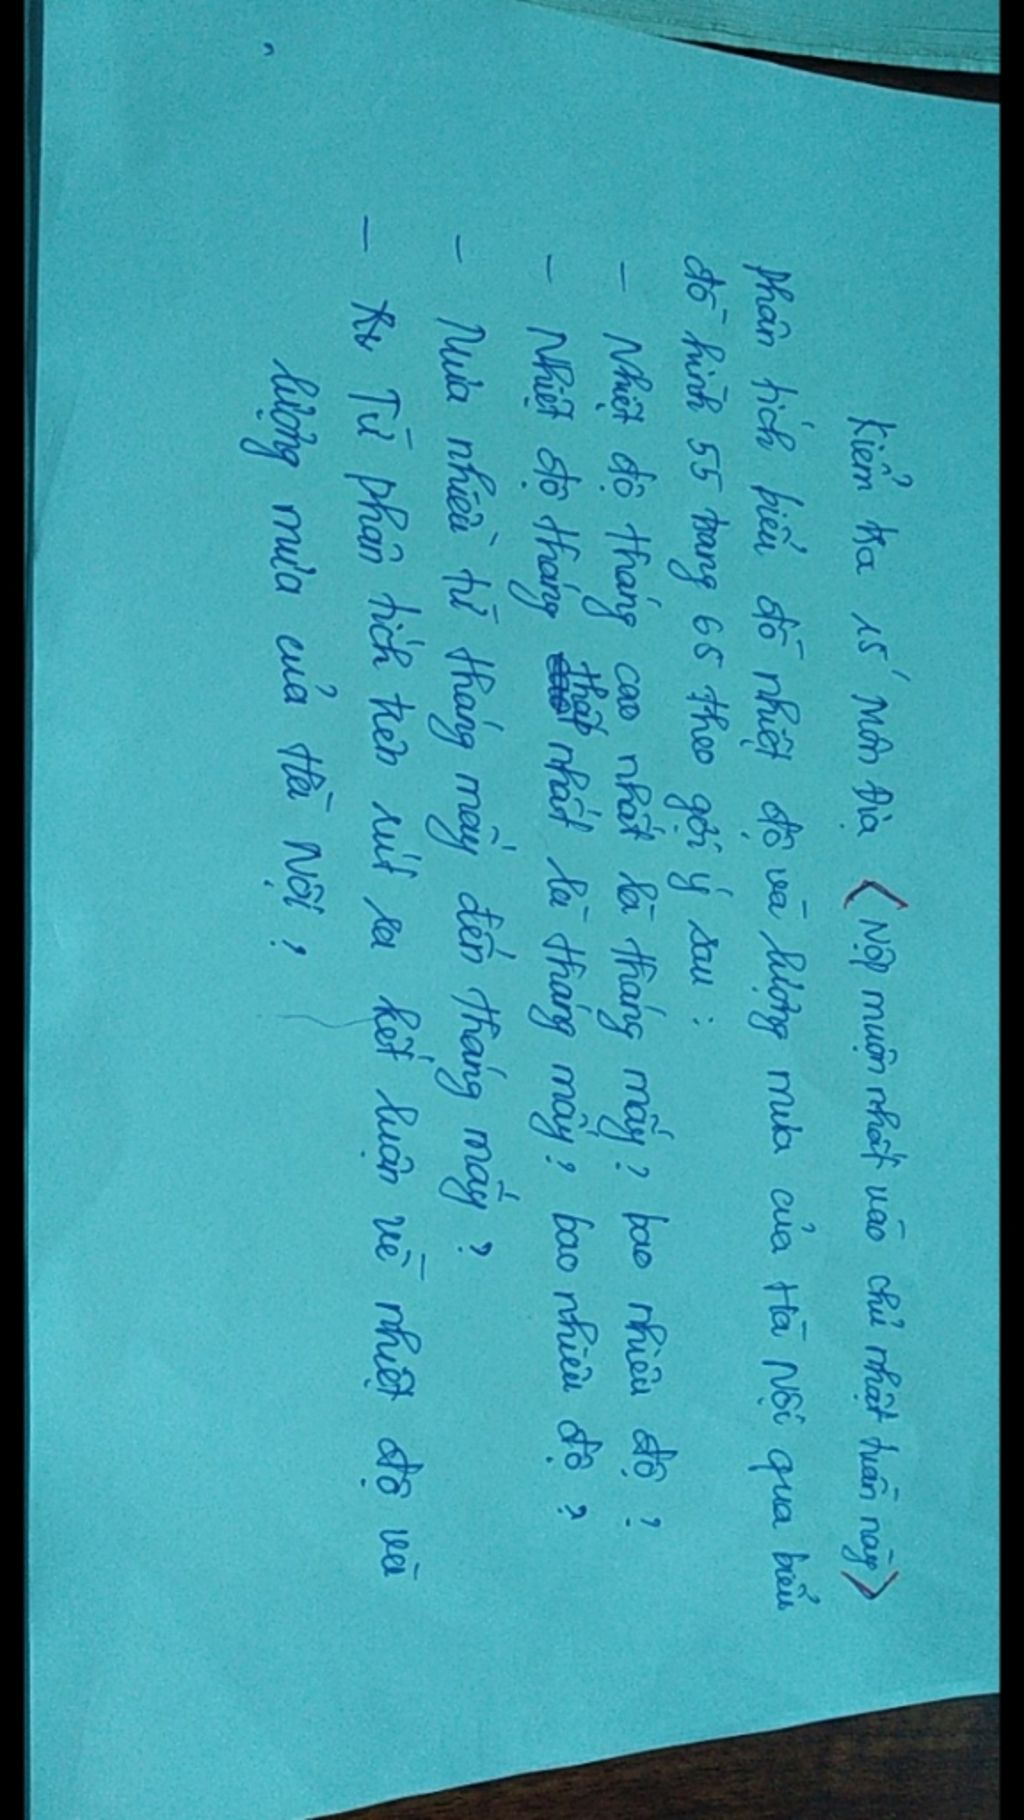 Kiểm tra 15' Môn Địa (Nộp muộn nhất vào chủ nhật tuần này)
Phân tích biểu đồ nhiệt độ và lượng mưa của Hà Nội qua biểu
đồ hình 55 trang 65 theo gợi ý sau:
- Nhiệt độ tháng cao nhất là tháng mấy? bao nhiêu độ?
- Nhiệt độ tháng thấp nhất là tháng mấy? bao nhiêu độ?
- Mưa nhiều từ tháng mấy đến tháng mấy?
- Từ phân tích trên rút ra kết luận về nhiệt độ và
lượng mưa của Hà Nội?